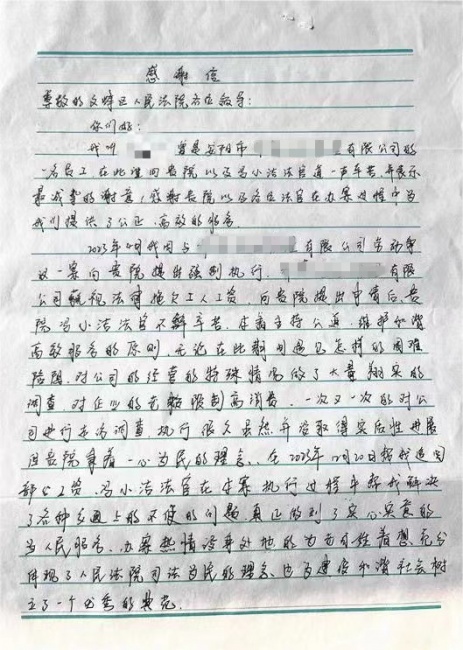 感谢信
尊敬的文峰区人民法院各位领导:
你们好:
我叫 曾是安阳市 有限公司的
一名员工在此谨向贵院以及冯小洁法官道一声辛苦并表示
最诚挚的谢意,感谢贵院以及各位法官在办案过程中为
我们提供了公正、高效的服务。
2023年 月我因与 有限公司劳动争
议一案向贵院提出强制执行。 有限
公司藐视法律拖欠工人工资,向贵院提出申请后,贵
院冯小洁法官不辞辛苦,本着主持公道,维护和谐
高效服务的原则,无论在此期间遇见怎样的困难
险阻,对公司的经营的特殊情况做了大量翔实的
调查,对企业的 限制高消费,一次又一次的对公
司进行走访调查执行很久虽然并没取得实质性进展
但贵院秉着一心为民的理念,在2023年12月20日帮我追回
部分工资,冯小洁法官在本案执行过程中帮我解决
了各种沟通上的不便的问题真正做到了实心实意的
为人民服务,办案热情设身处地的为老百姓着想充分
体现了人民法院司法为民的理念,也为建设和谐社会树
立了一个优秀的典范。